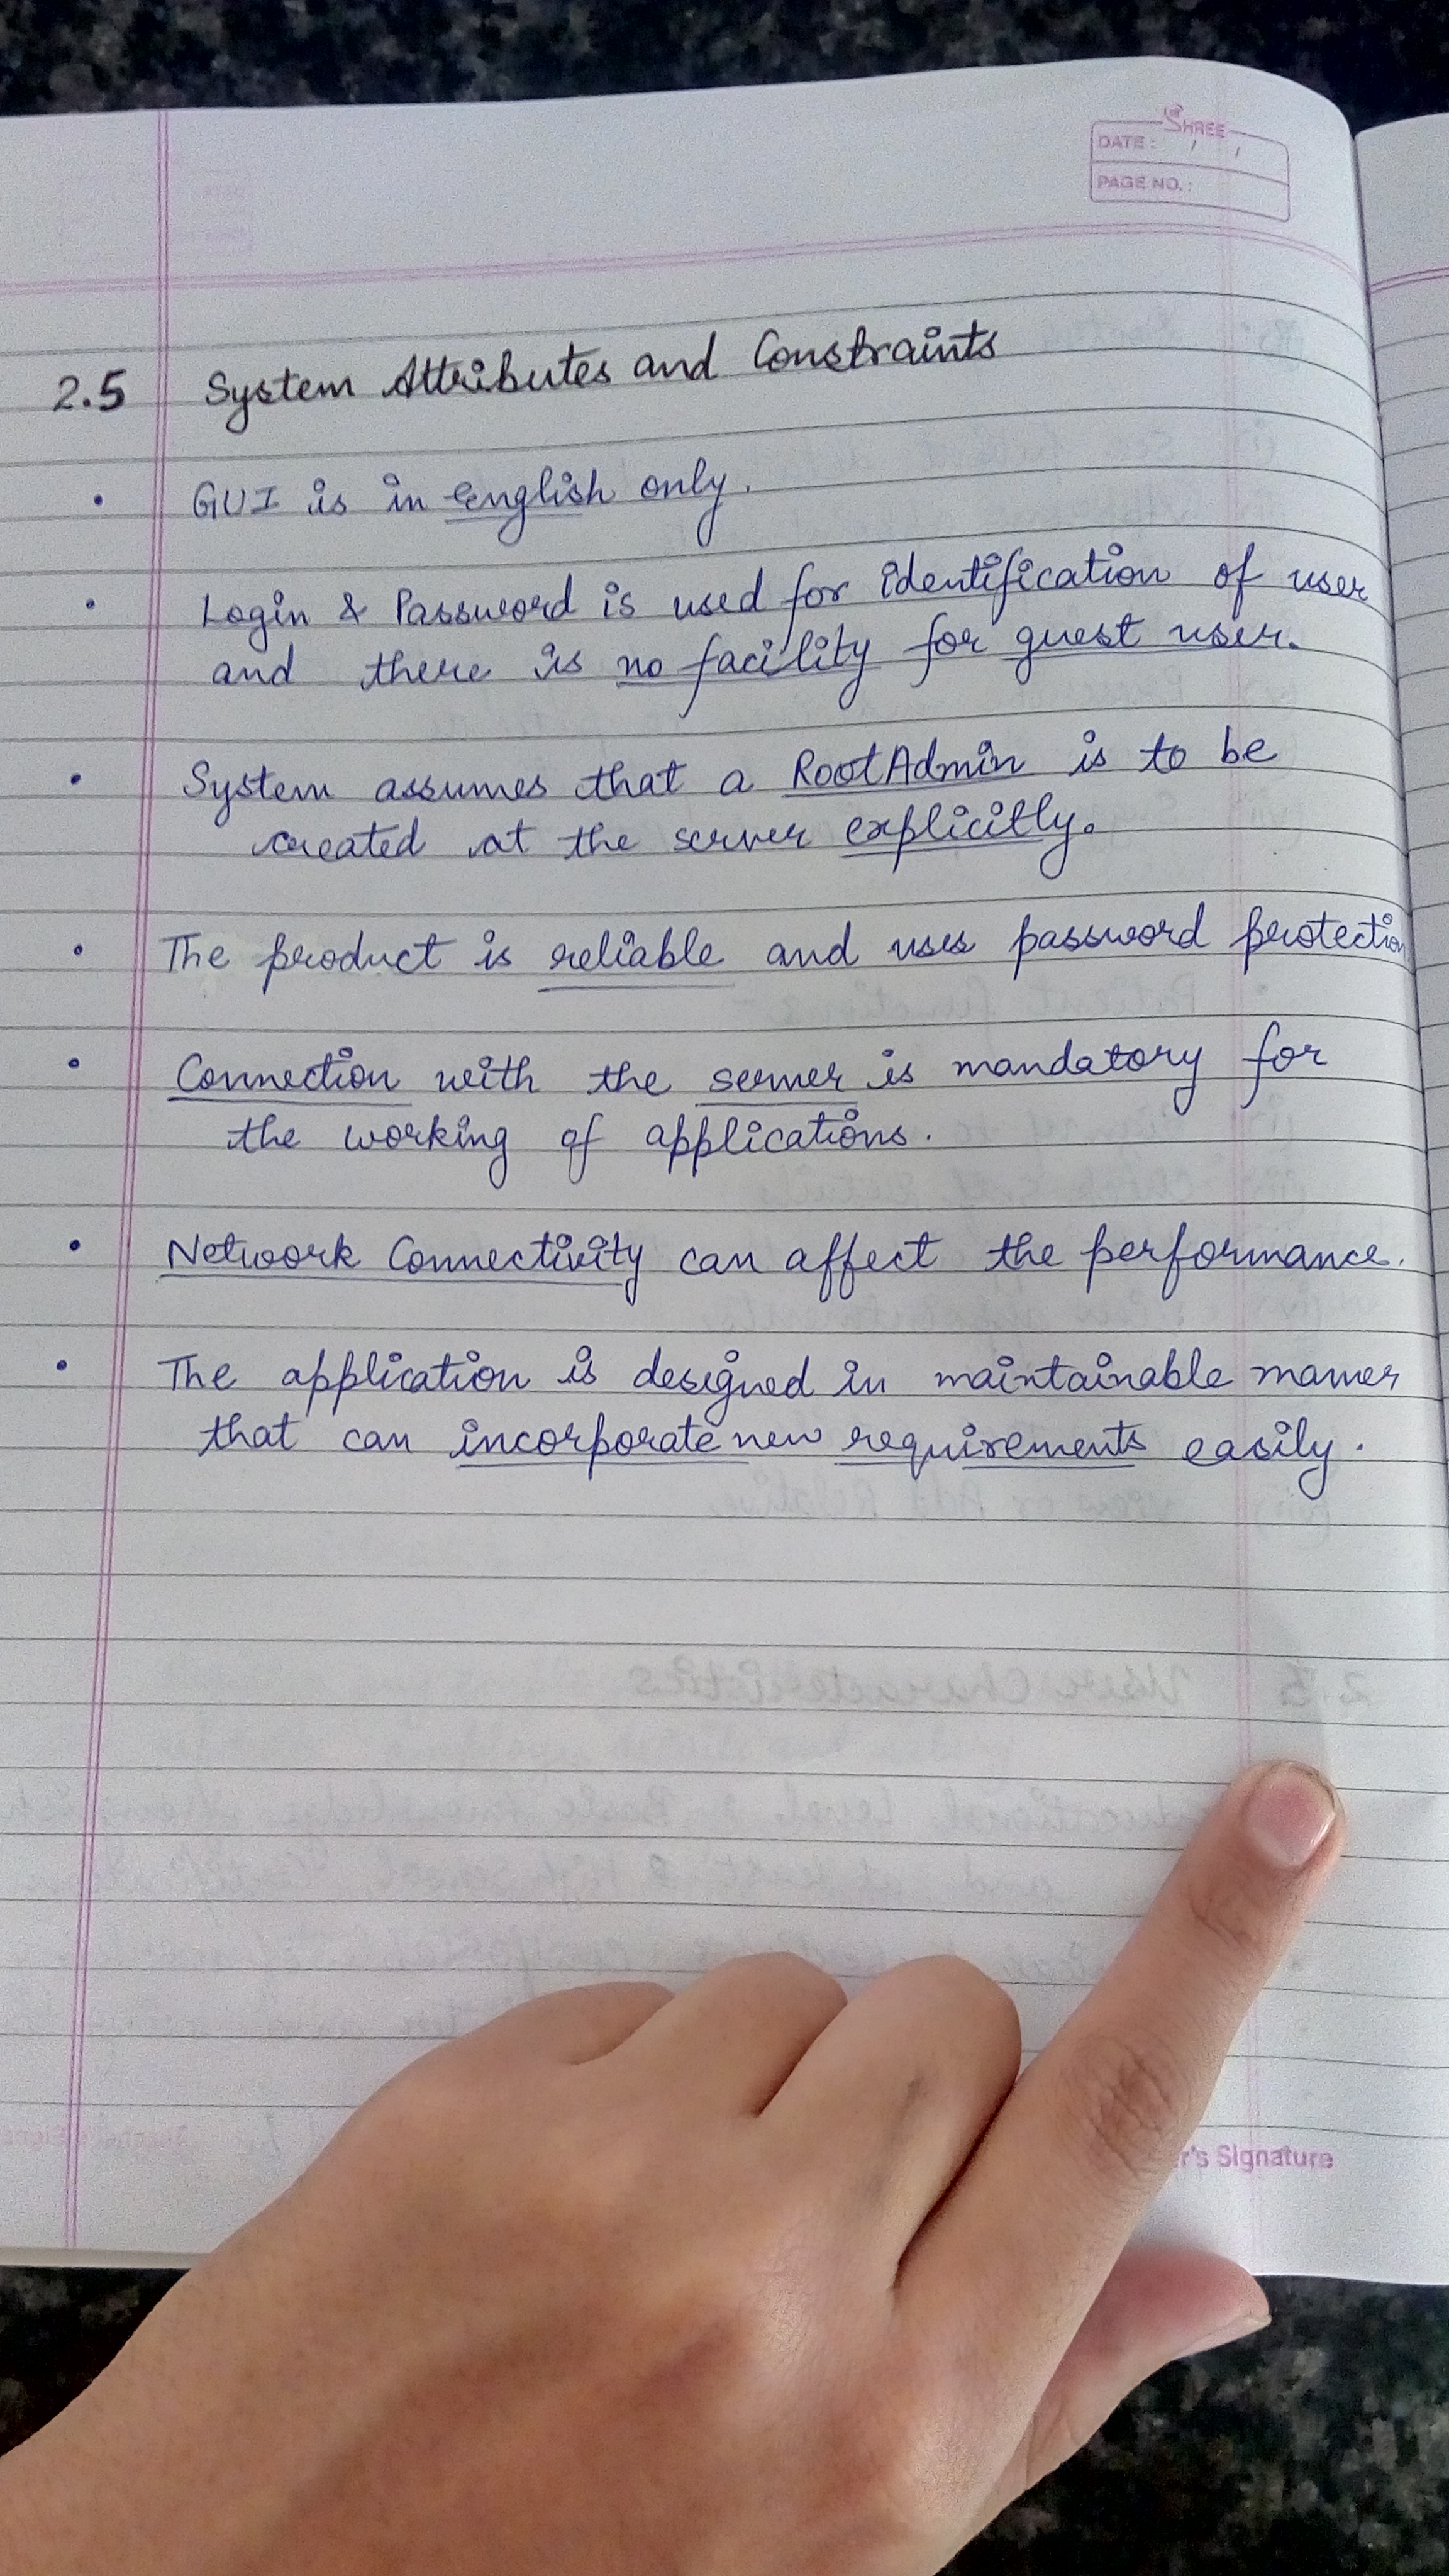 SHREE
DATE: / /
PAGE NO.:
2.5 System Attributes and Constraints
• GUI is in english only.
• Login & Password is used for identification of user
and there is no facility for guest user.
• System assumes that a RootAdmin is to be
created at the server explicitly.
• The product is reliable and uses password protection
• Connection with the server is mandatory for
the working of applications.
• Network Connectivity can affect the performance.
• The application is designed in maintainable manner
that can incorporate new requirements easily.
2.3 User Characteristics
r's Signature